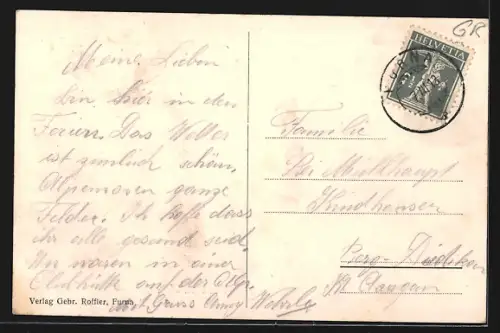 GR
HELVETIA
Meine Lieben
bin hier in den
Ferien. Das Wetter
ist ziemlich schön.
Alpenrosen ganze
Felder. Ich hoffe dass
ihr alle gesund seid.
Wir waren in einer
Clubhütte auf der Alp.
Gruss Wehrle
Familie
Berg-Dietikon
Kt Aargau
Verlag Gebr. Roffler, Furna